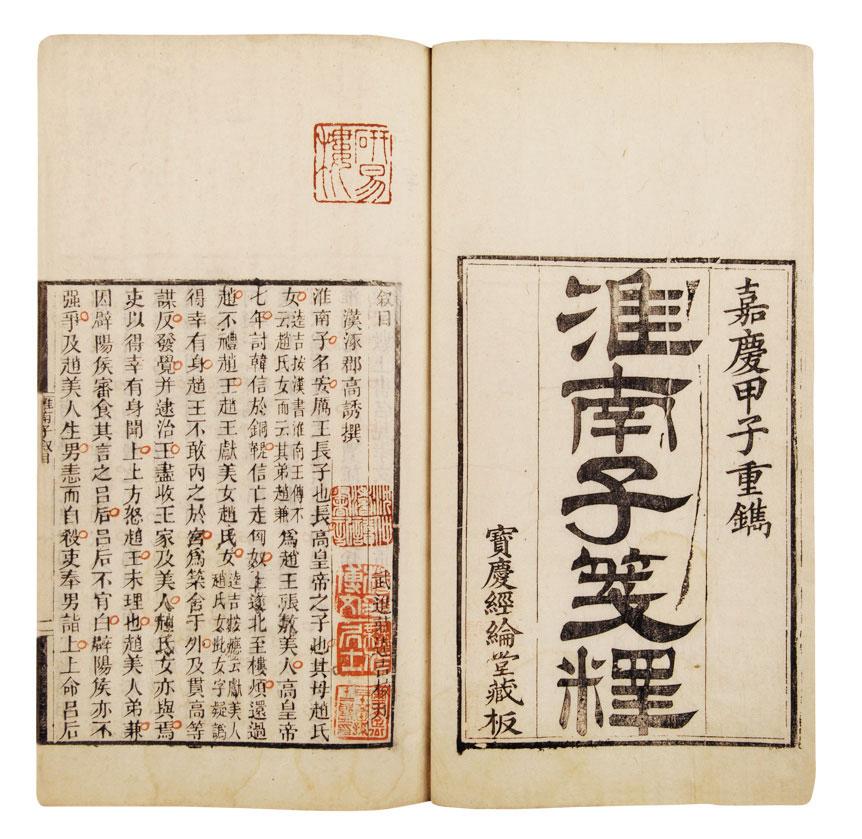 嘉慶甲子重鐫
淮南子箋釋
寶慶經綸堂藏板
研易樓
叙目 武進莊逵吉校刊
漢涿郡高誘撰
淮南子名安厲王長子也長高皇帝之子也其母趙氏
女逵吉按漢書淮南王傳不云趙氏女而云其弟趙兼為趙王張敖美人高皇帝
七年討韓信於銅鞮信亡走匈奴上遂北至樓煩還過
趙不禮趙王趙王獻美女趙氏女逵吉按應云獻美人趙氏女此女字疑譌
得幸有身趙王不敢內之於宮為築舍于外及貫高等
謀反發覺并逮治王盡收王家及美人趙氏女亦與焉
吏以得幸有身聞上上方怒趙王未理也趙美人弟兼
因辟陽侯審食其言之呂后呂后不肎白辟陽侯亦不
强爭及趙美人生男恚而自殺吏奉男詣上上命呂后
淮南子叙目